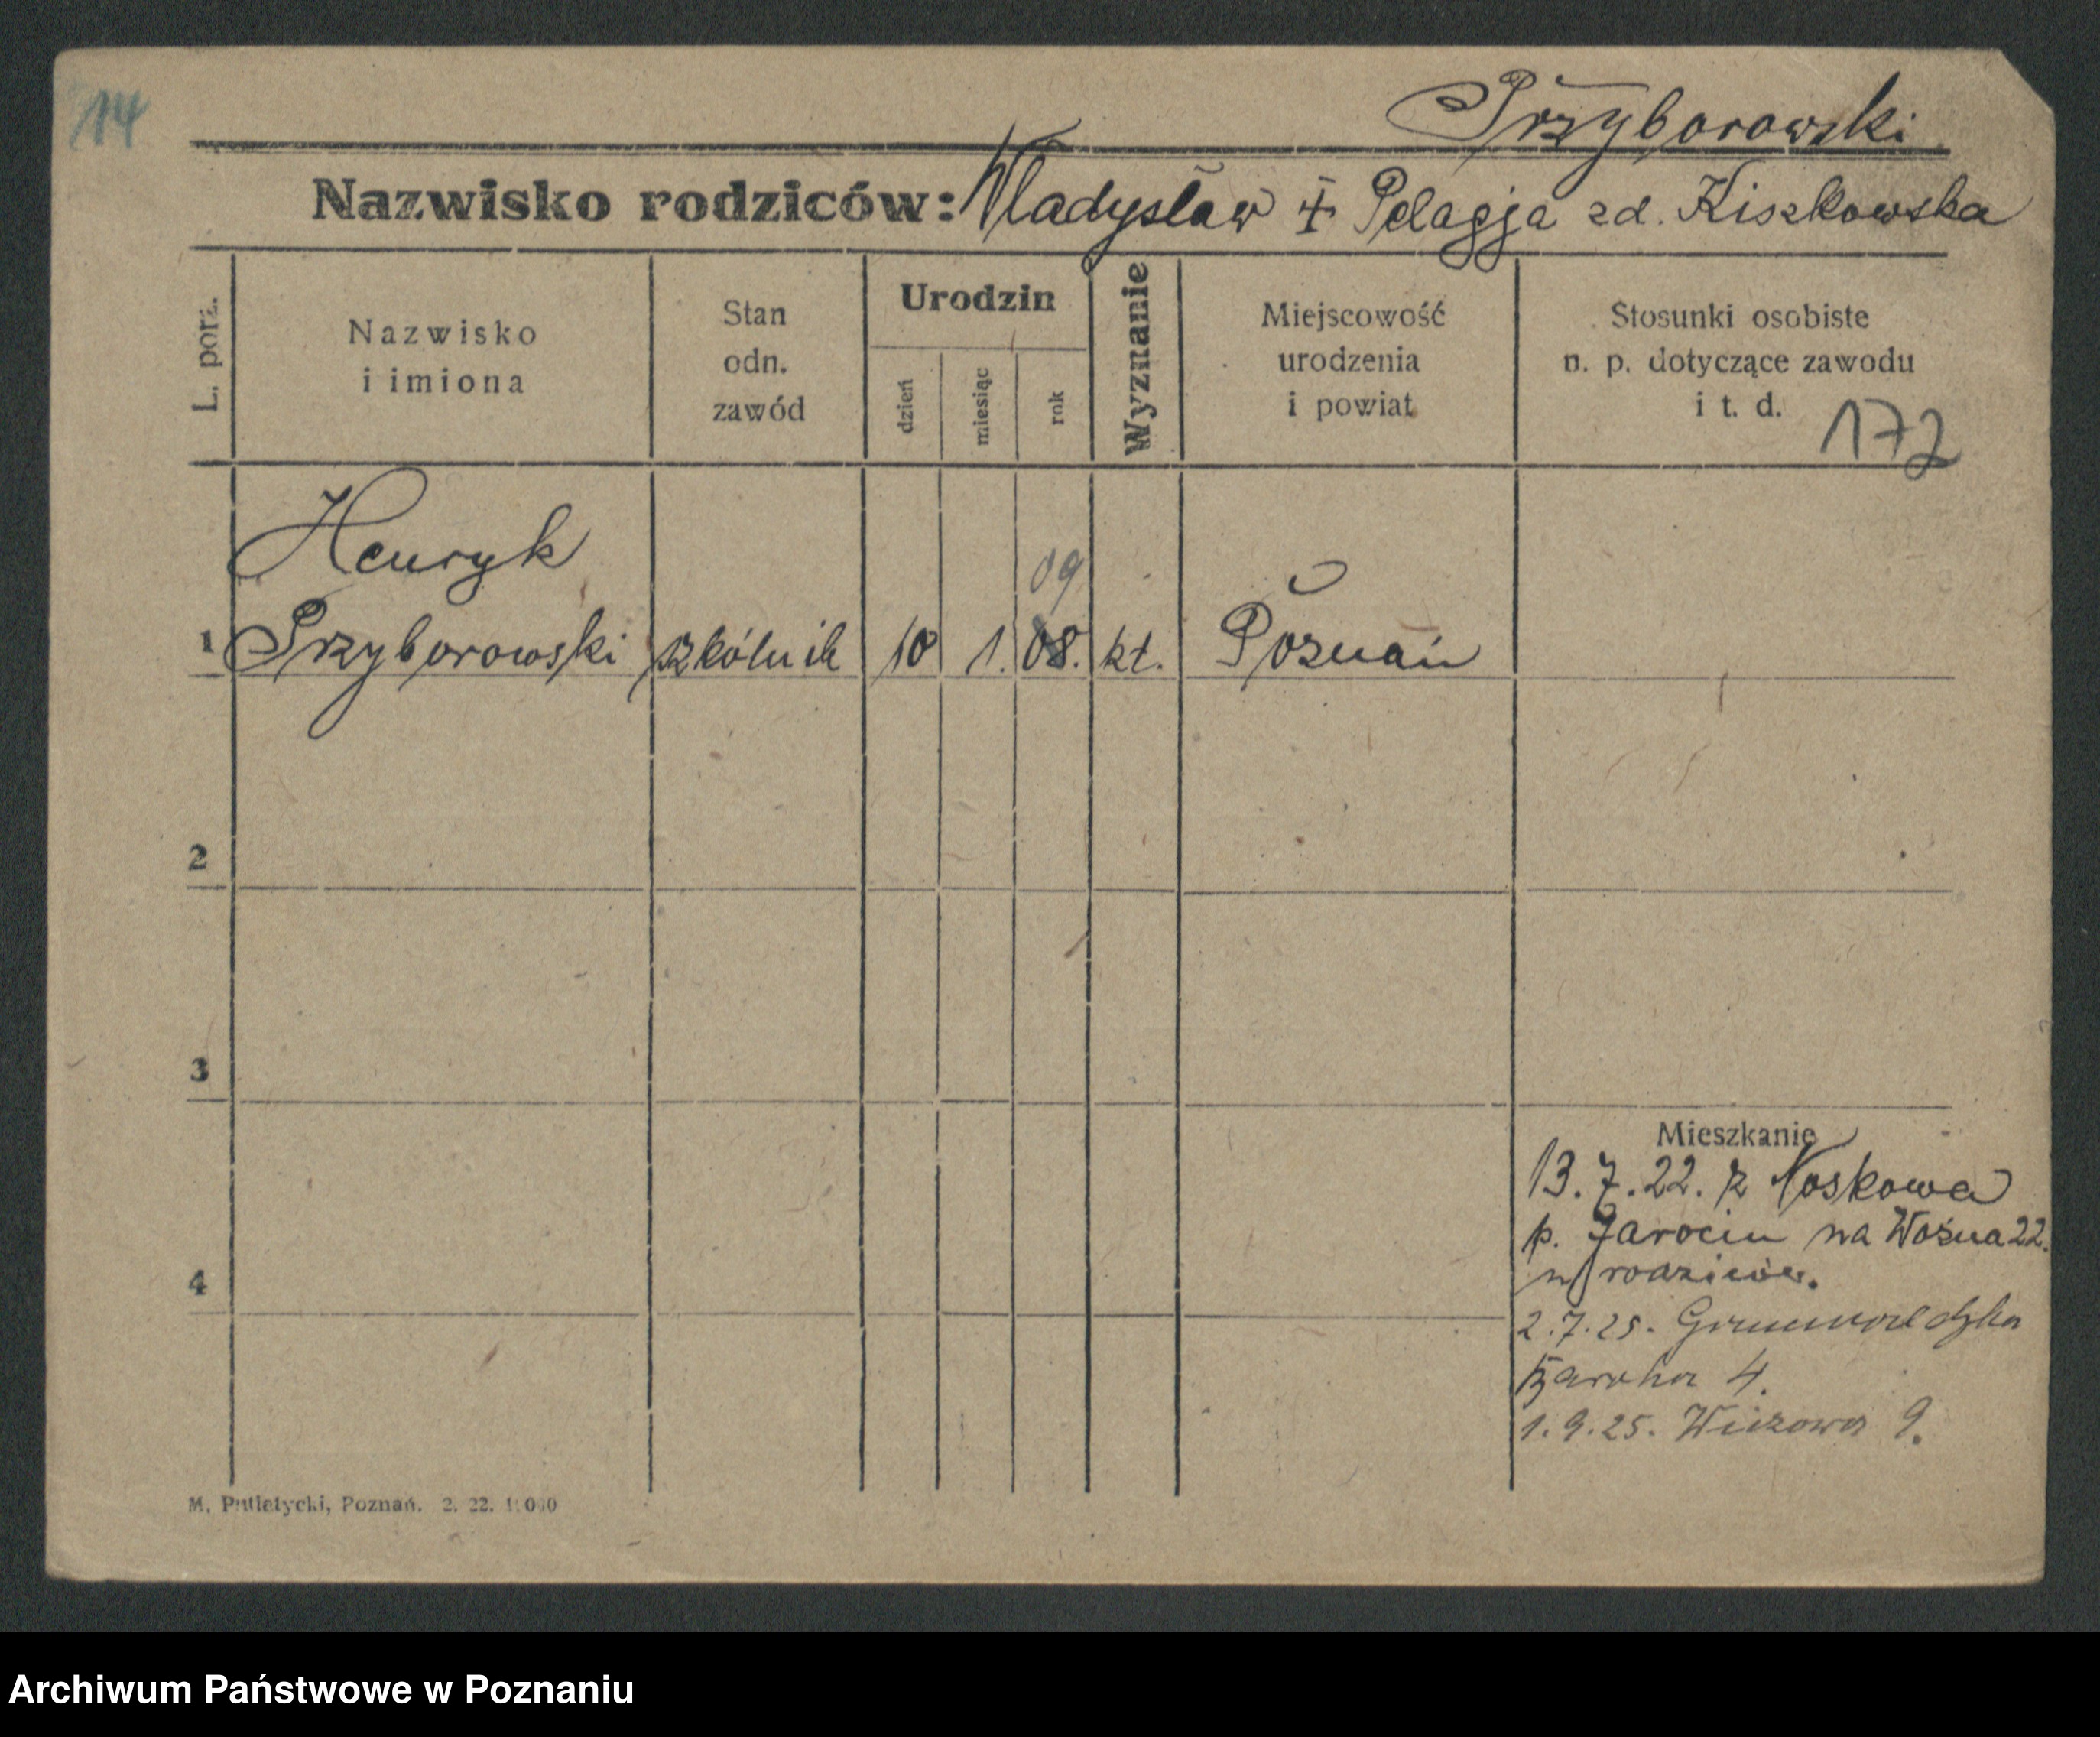 14
Przyborowski
Nazwisko rodziców: Władysław i Pelagja zd. Kiszkowska
L. porz.
Nazwisko
i imiona
Stan
odn.
zawód
Urodzin
dzień
miesiąc
rok
Wyznanie
Miejscowość
urodzenia
i powiat
Stosunki osobiste
n. p. dotyczące zawodu
i t. d.
172
Henryk
09
1 Przyborowski szkólnik 10 1. 08. kt. Poznań
2
3
4
Mieszkanie
13. 7. 22. z Noskowa
p. Jarocin na Woźna 22.
u rodziców.
2. 7. 25. Grunwaldzka
4.
1. 9. 25. 9.
M. Putiatycki, Poznań. 2. 22.
Archiwum Państwowe w Poznaniu